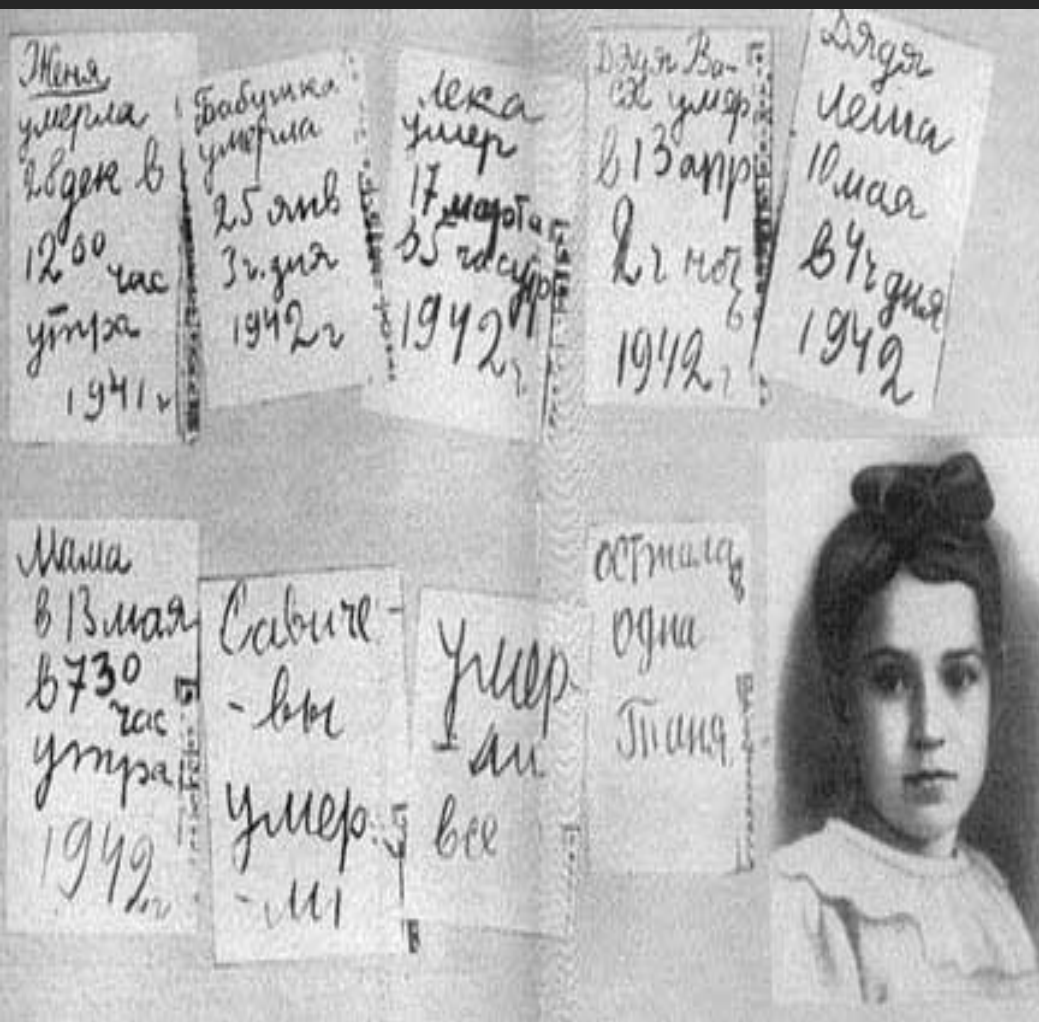 Женя
умерла
28 дек в
12⁰⁰
час
утра
1941 г
Бабушка
умерла
25 янв
3 г. дня
1942 г
Лека
умер
17 марта
в 5 час утр
1942 г.
Дядя Ва-
ся умер
в 13 апр
2 г ноч
1942 г
Дядя
Леша
10 мая
в 4 ч дня
1942
Мама
в 13 мая
в 730
час
утра
1942 г
Савиче-
-вы
умер.
-ли
Умер
-ли
все
осталас
одна
Таня